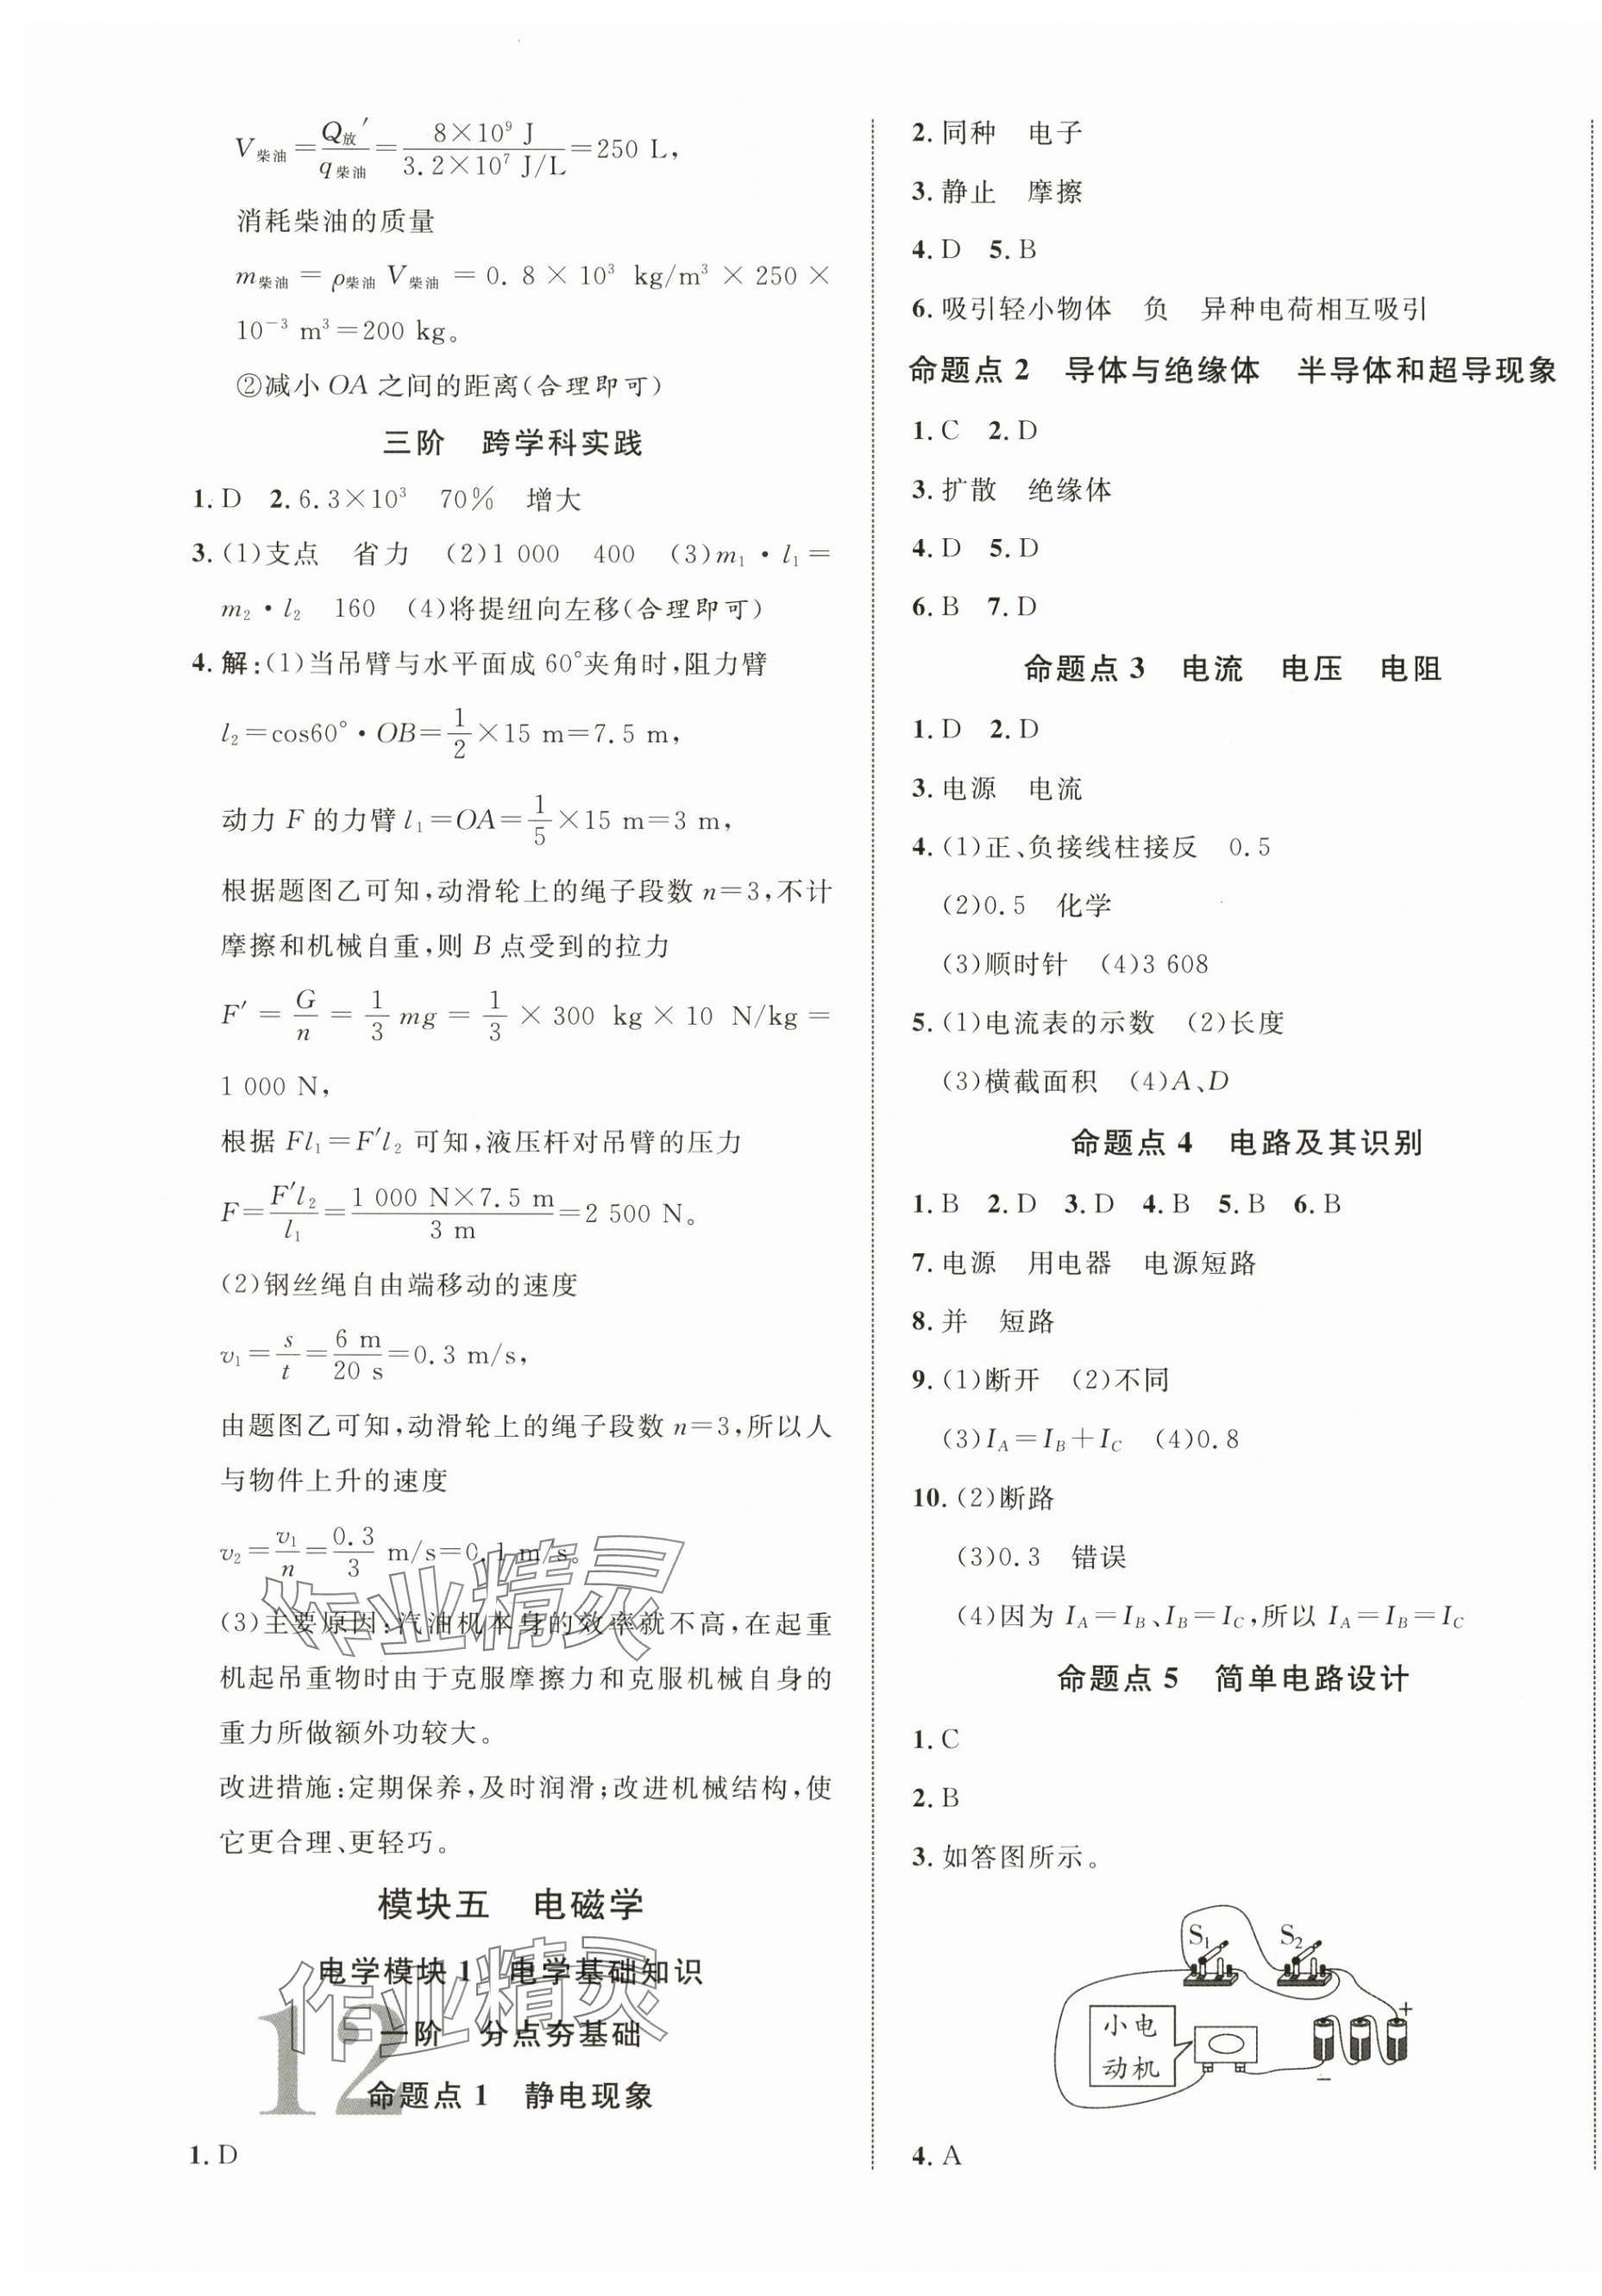 V柴油=Q放′/q柴油=8×10⁹ J/3.2×10⁷ J/L=250 L，
消耗柴油的质量
m柴油＝ρ柴油V柴油＝0.8×10³ kg/m³×250×
10⁻³ m³＝200 kg。
②减小OA之间的距离(合理即可)
三阶 跨学科实践
1. D 2. 6.3×10³ 70% 增大
3. (1)支点 省力 (2)1 000 400 (3)m₁·l₁＝
m₂·l₂ 160 (4)将提纽向左移(合理即可)
4. 解：(1)当吊臂与水平面成60°夹角时，阻力臂
l₂＝cos60°·OB＝1/2×15 m＝7.5 m，
动力F的力臂l₁＝OA＝1/5×15 m＝3 m，
根据题图乙可知，动滑轮上的绳子段数n＝3，不计
摩擦和机械自重，则B点受到的拉力
F′＝G/n＝1/3mg＝1/3×300 kg×10 N/kg＝
1 000 N，
根据Fl₁＝F′l₂可知，液压杆对吊臂的压力
F＝F′l₂/l₁＝1 000 N×7.5 m/3 m＝2 500 N。
(2)钢丝绳自由端移动的速度
v₁＝s/t＝6 m/20 s＝0.3 m/s，
由题图乙可知，动滑轮上的绳子段数n＝3，所以人
与物件上升的速度
v₂＝v₁/n＝0.3/3 m/s＝0.1 m/s。
(3)主要原因：汽油机本身的效率就不高，在起重
机起吊重物时由于克服摩擦力和克服机械自身的
重力所做额外功较大。
改进措施：定期保养，及时润滑；改进机械结构，使
它更合理、更轻巧。
模块五 电磁学
电学模块1 电学基础知识
一阶 分点夯基础
命题点1 静电现象
1. D
2. 同种 电子
3. 静止 摩擦
4. D 5. B
6. 吸引轻小物体 负 异种电荷相互吸引
命题点2 导体与绝缘体 半导体和超导现象
1. C 2. D
3. 扩散 绝缘体
4. D 5. D
6. B 7. D
命题点3 电流 电压 电阻
1. D 2. D
3. 电源 电流
4. (1)正、负接线柱接反 0.5
(2)0.5 化学
(3)顺时针 (4)3 608
5. (1)电流表的示数 (2)长度
(3)横截面积 (4)A、D
命题点4 电路及其识别
1. B 2. D 3. D 4. B 5. B 6. B
7. 电源 用电器 电源短路
8. 并 短路
9. (1)断开 (2)不同
(3)I_A＝I_B＋I_C (4)0.8
10. (2)断路
(3)0.3 错误
(4)因为I_A＝I_B、I_B＝I_C，所以I_A＝I_B＝I_C
命题点5 简单电路设计
1. C
2. B
3. 如答图所示。
S₁ S₂
小电
动机
＋
－
4. A
12
作业精灵
作业精灵